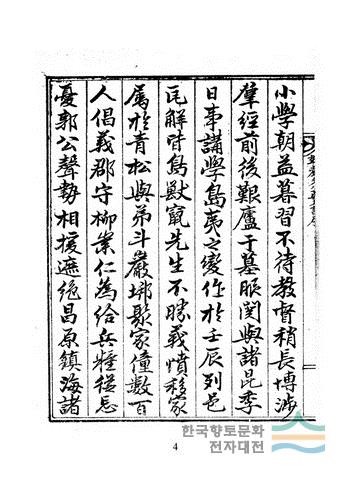 小學朝益暮習不待教督稍長博涉
羣經前後艱廬于墓服闋與諸昆季
日事講學島夷之變作於壬辰列邑
瓦解皆鳥獸竄先生不勝義憤移家
屬於青松與弟斗巖
聚家僮數百
人倡義郡守柳
仁為給兵糧從忘
憂郭公聲勢相援遮絶昌原鎮海諸
4
한국향토문화
전자대전